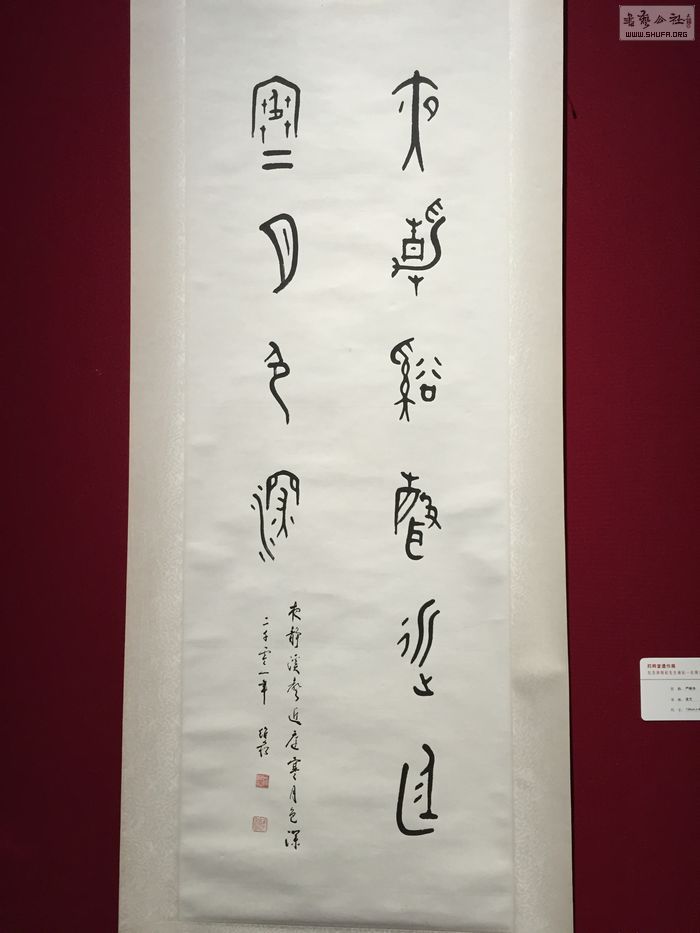 夜静谿声近庭
寒月色深
夜静溪声近庭寒月色深
二千零一年
书艺公社
WWW.SHUFA.ORG